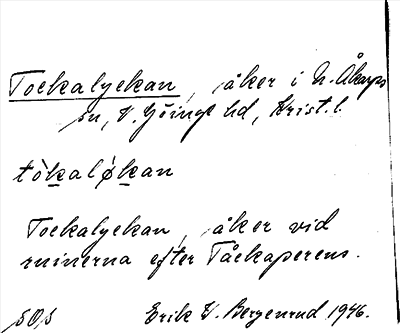 Tockalyckan, åker i N. Åkarps
sn, V. Göinge hd, Krist. l.
tòkaløkan
Tockalyckan, åker vid
ruinerna efter Tåckaperens.
SOS Erik W. Bergenrud 1946.